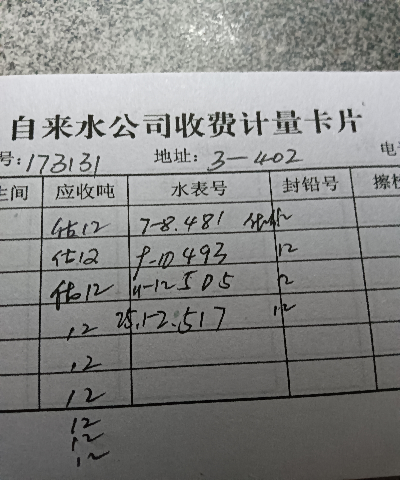 自来水公司收费计量卡片
号:173131 地址:3-402 电
生间 应收吨 水表号 封铅号 擦
估12 7-8.481 估12
估12 9-10 493 12
估12 11-12 505 12
12 25.1-2.517 12
12
12
12
12
12